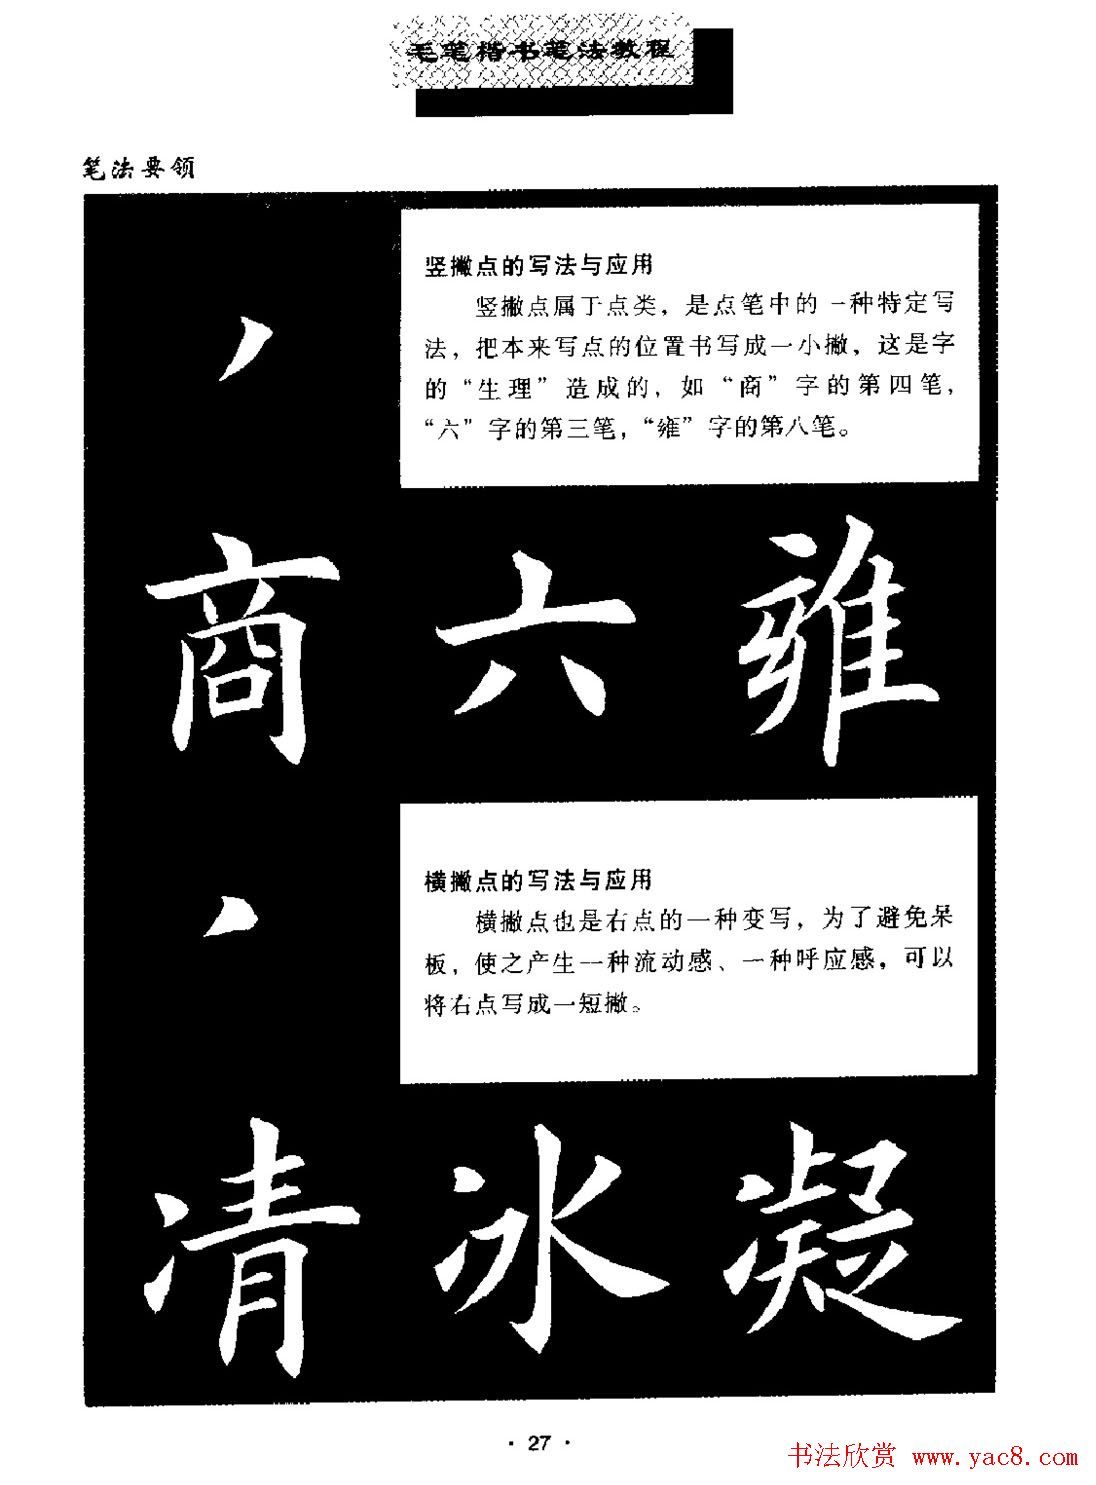 毛笔楷书笔法教程
笔法要领
竖撇点的写法与应用
竖撇点属于点类，是点笔中的一种特定写
法，把本来写点的位置书写成一小撇，这是字
的“生理”造成的，如“商”字的第四笔，
“六”字的第三笔，“雍”字的第八笔。
商 六 雍
横撇点的写法与应用
横撇点也是右点的一种变写，为了避免呆
板，使之产生一种流动感、一种呼应感，可以
将右点写成一短撇。
清 冰 凝
· 27 ·
书法欣赏 www.yac8.com